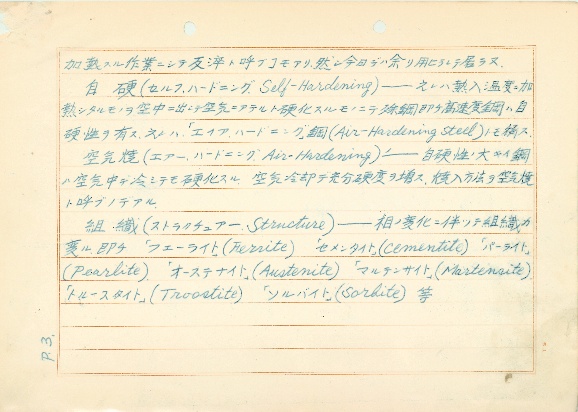 加熱スル作業ニシテ反淬ト呼ブコモアリ.然シ今日デハ余リ用ヒラレテ居ラヌ.
自 硬(セルフ.ハードニング Self-Hardening)―― 之レハ熱入温度ニ加
熱シタルモノヲ空中ニ出シテ空気ニアテルト硬化スルモノニテ 鋼即チ高速度鋼ハ自
硬性ヲ有ス.之レハ.「エイア.ハードニング」鋼(Air-Hardening Steel)トモ稱ス.
空気焼(エアー.ハードニング Air-Hardening)―― 自硬性ノ大ナル鋼
ハ空気中デ冷シテモ硬化スル 空気冷却デ充分硬度ヲ増ス.焼入方法ヲ空気焼
ト呼ブノデアル.
組 織(ストラクチュアー.Structure)―― 相ノ変化ニ伴ッテ組織ガ
変ル.即チ 「フェーライト」(Ferrite) 「セメンタイト」(Cementite) 「パーライト」
(Pearlite) 「オーステナイト」(Austenite) 「マルテンサイト」(Martensite)
「トルースタイト」(Troostite) 「ソルバイト」(Sorbite) 等
P.3.